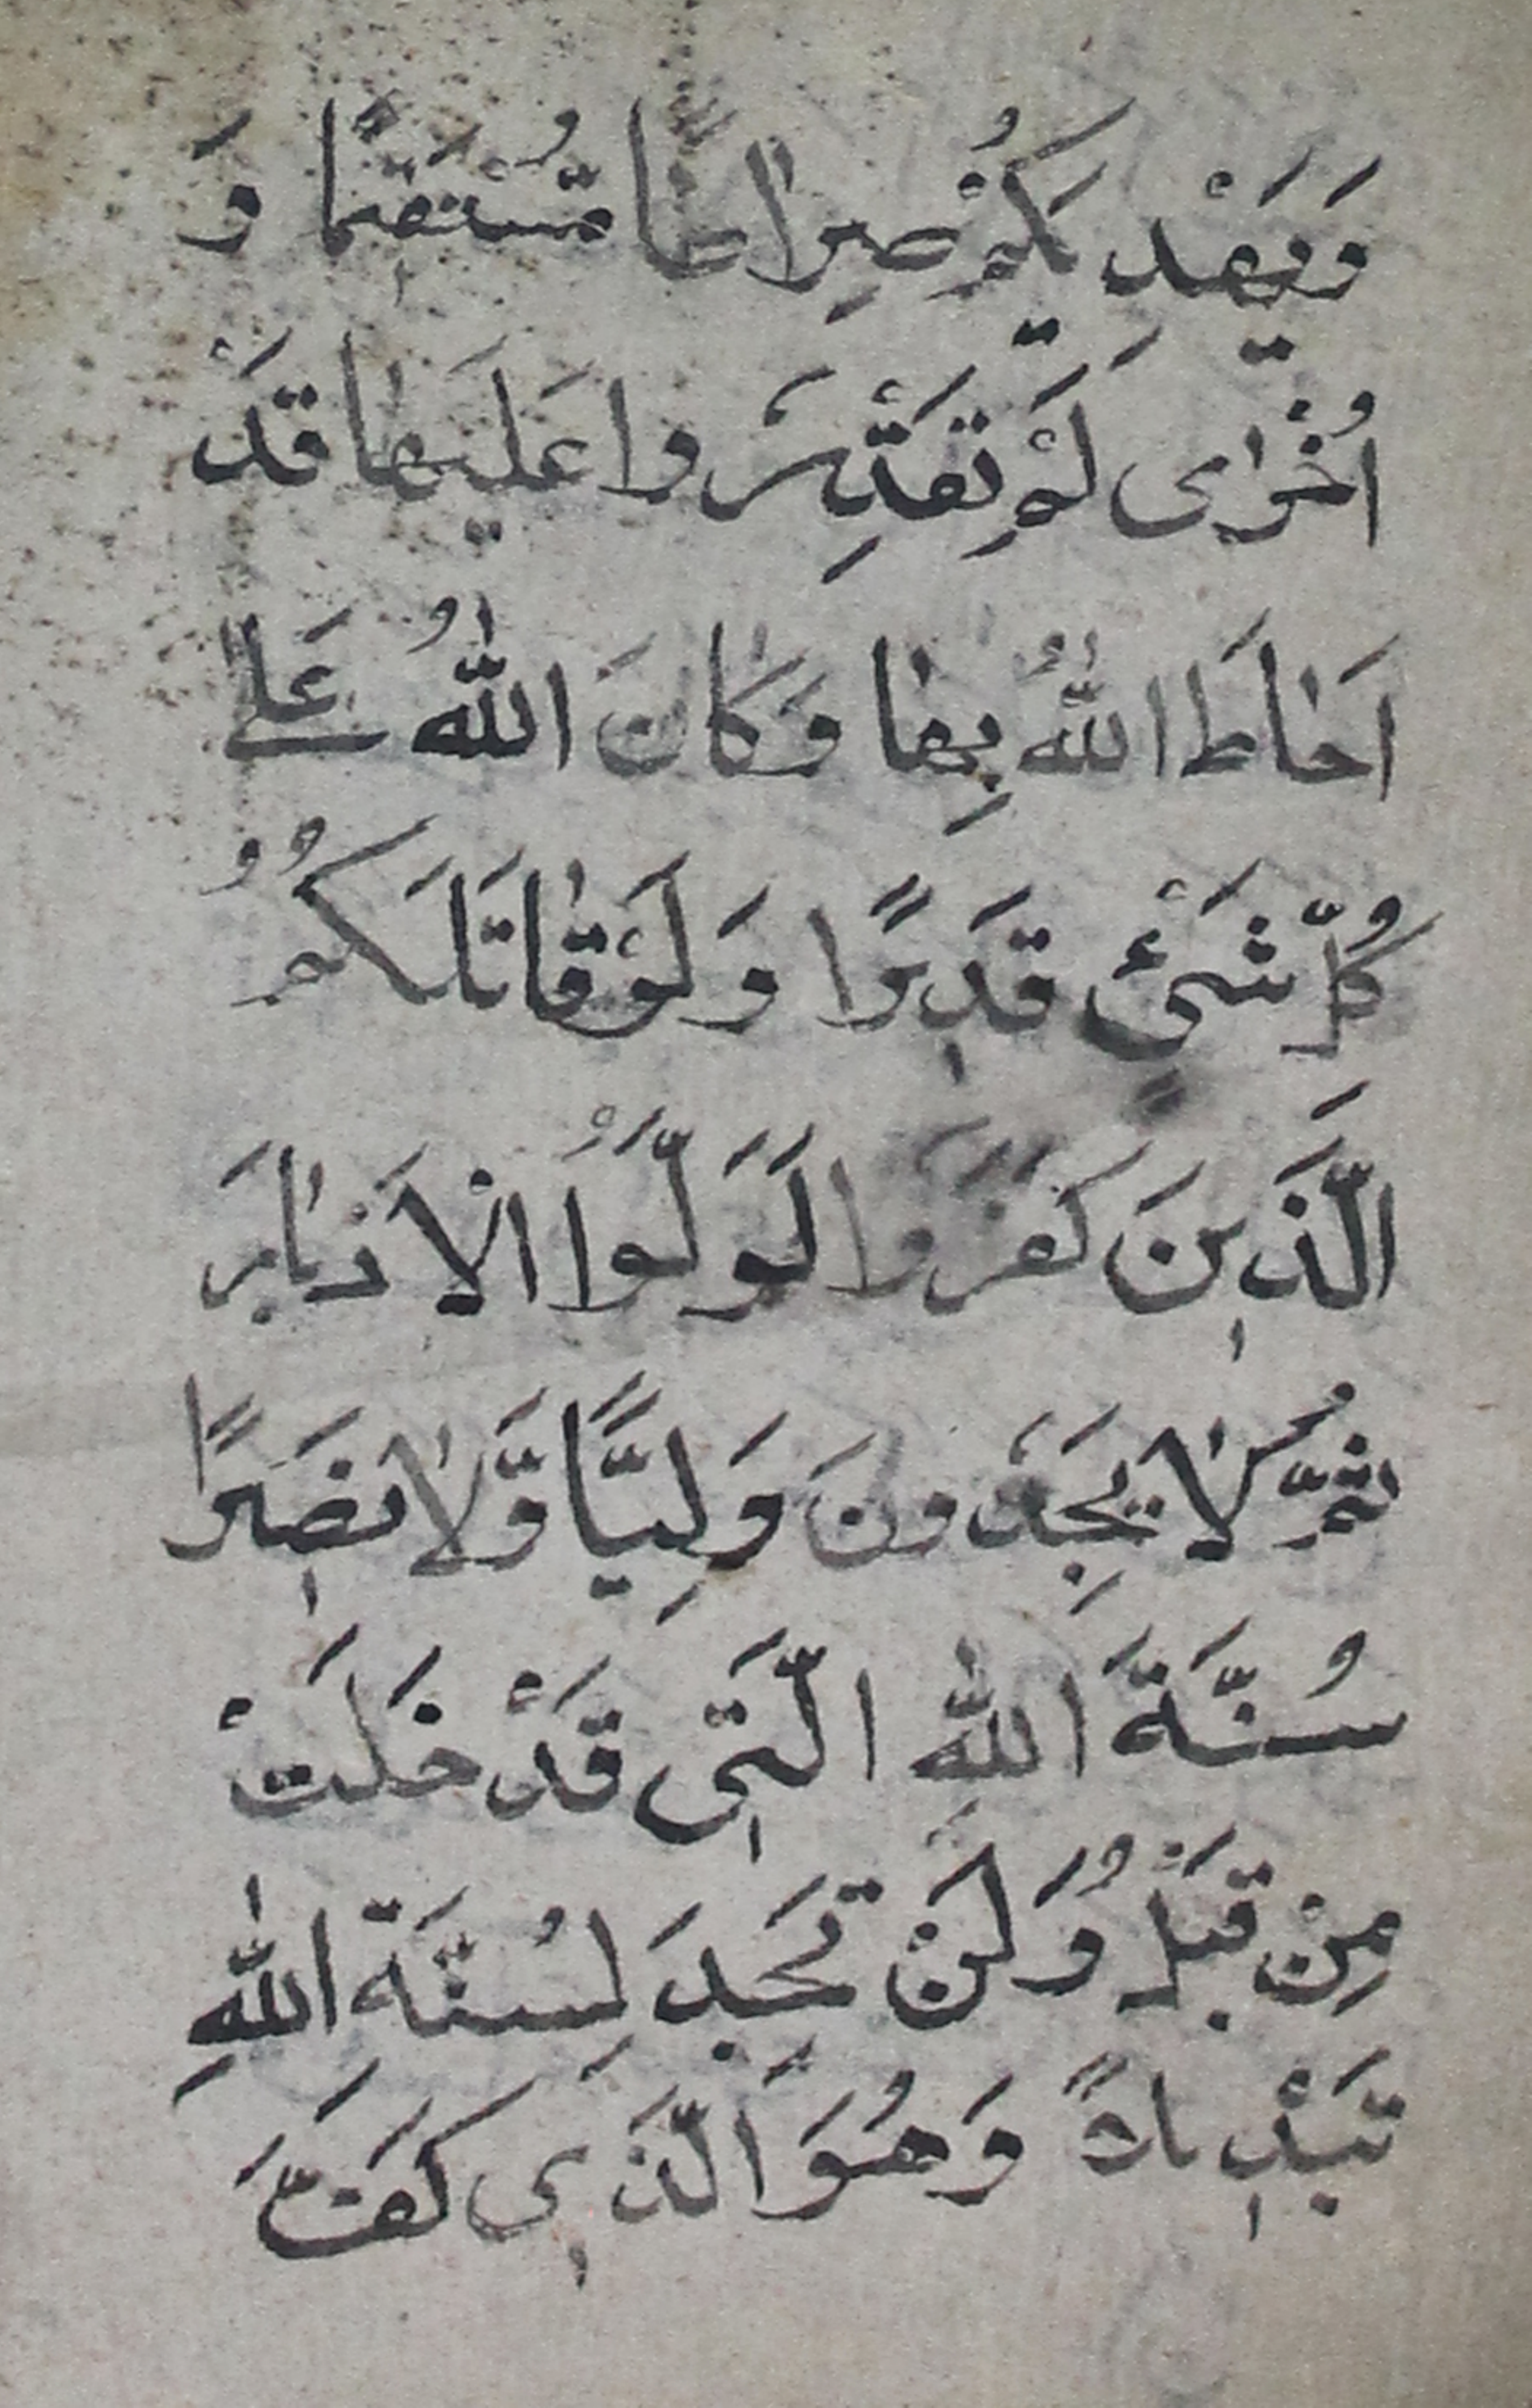 وَيَهْدِيَكُمْ صِرٰاطًا مُّسْتَقٖيمًا وَ
اُخْرٰى لَمْ تَقْدِرُوا عَلَيْهٰا قَدْ
اَحٰاطَ اللّٰهُ بِهٰا وَكٰانَ اللّٰهُ عَلٰى
كُلِّ شَىْءٍ قَدٖيرًا وَلَوْ قٰاتَلَكُمُ
الَّذٖينَ كَفَرُوا لَوَلَّوُا الْاَدْبٰارَ
ثُمَّ لٰا يَجِدُونَ وَلِيًّا وَّلٰا نَصٖيرًا
سُنَّةَ اللّٰهِ الَّتٖى قَدْ خَلَتْ
مِنْ قَبْلُ وَلَنْ تَجِدَ لِسُنَّةِ اللّٰهِ
تَبْدٖيلاً وَهُوَ الَّذٖى كَفَّ